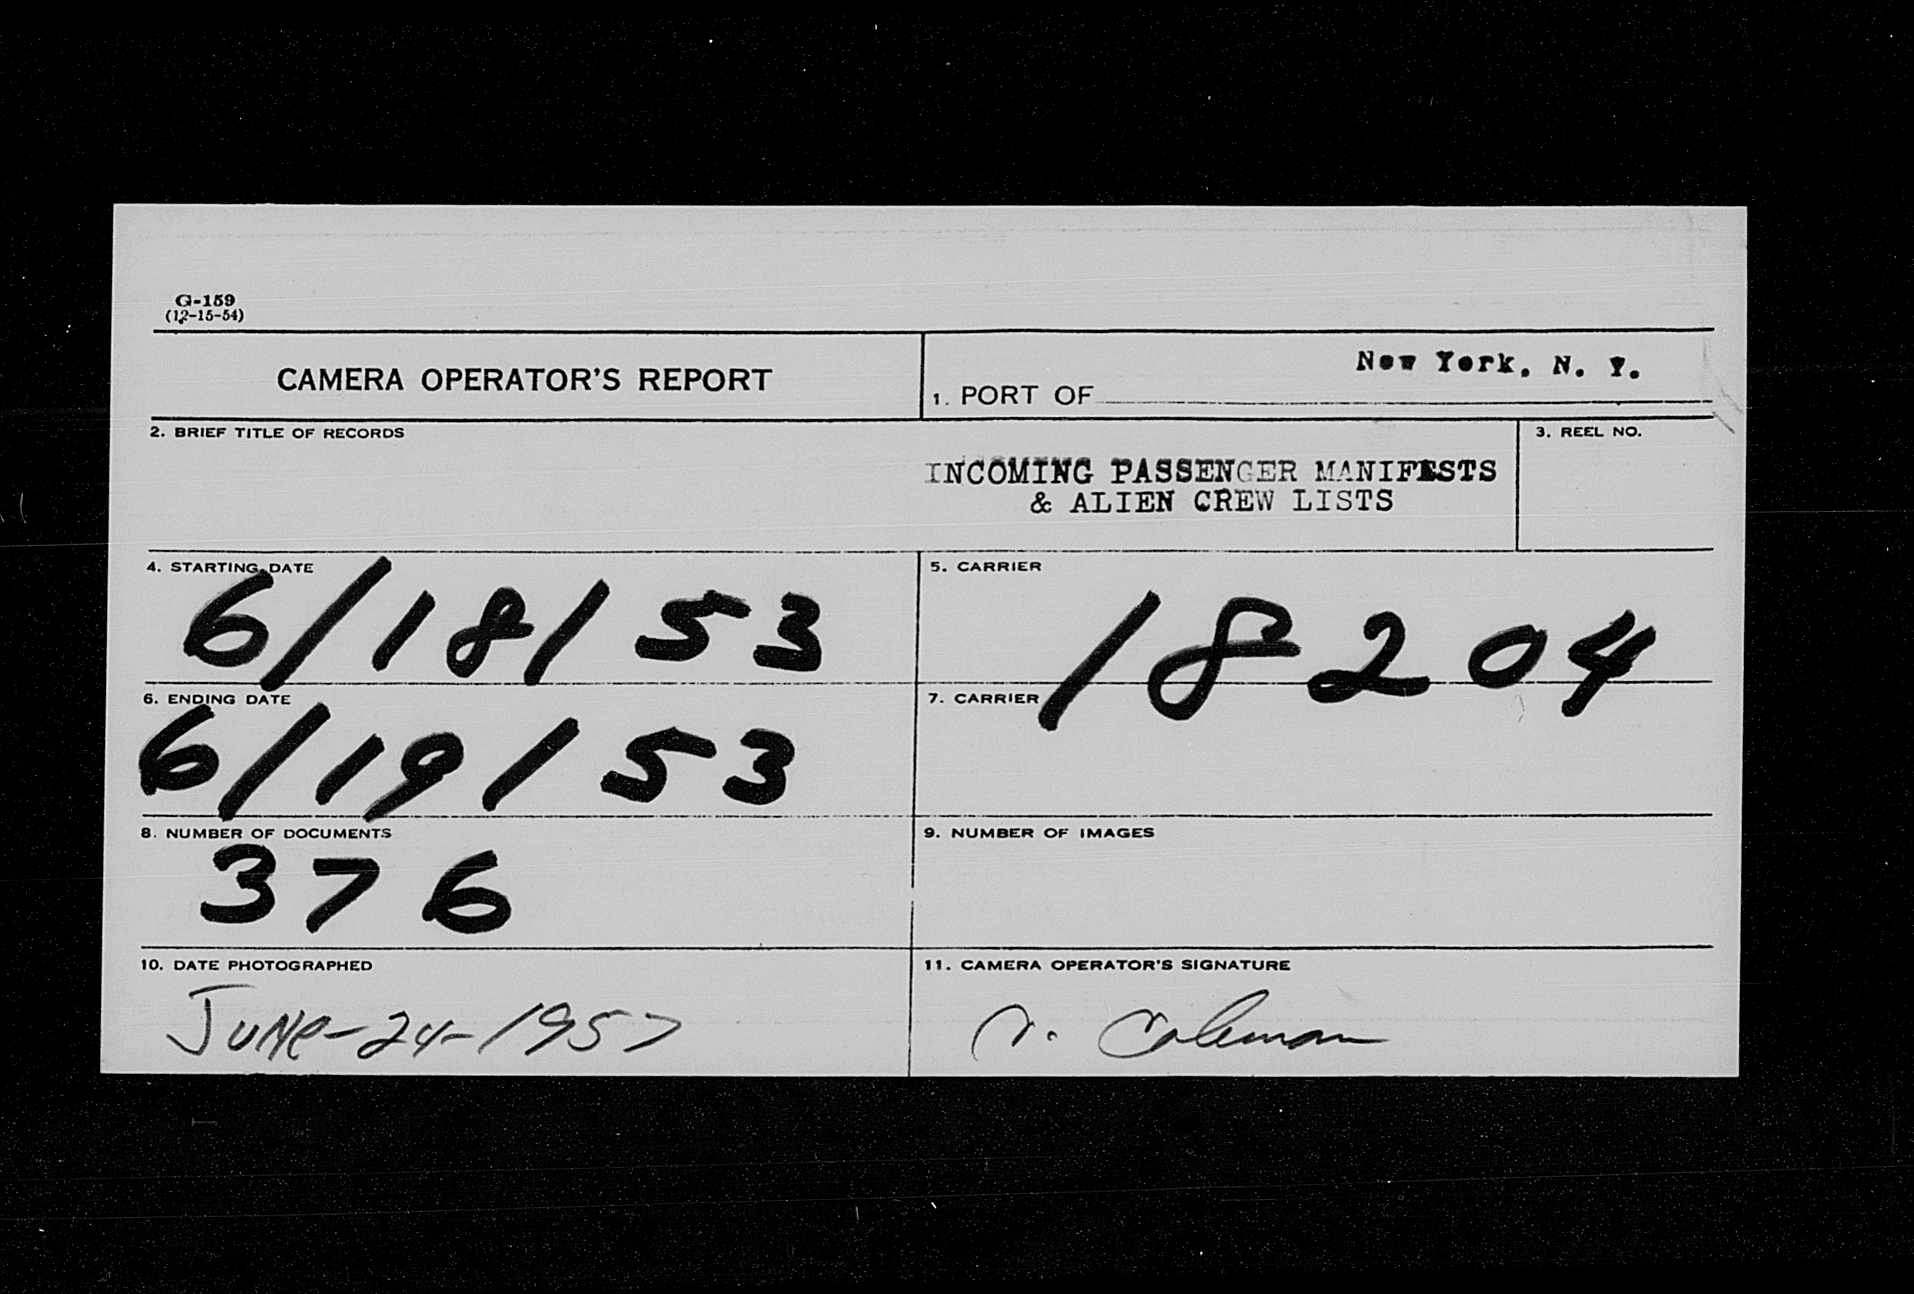 G-159
(12-15-54)
CAMERA OPERATOR'S REPORT
1. PORT OF New York, N. Y.
2. BRIEF TITLE OF RECORDS
INCOMING PASSENGER MANIFESTS
& ALIEN CREW LISTS
3. REEL NO.
4. STARTING DATE
6/18/53
5. CARRIER
18204
6. ENDING DATE
6/19/53
7. CARRIER
8. NUMBER OF DOCUMENTS
376
9. NUMBER OF IMAGES
10. DATE PHOTOGRAPHED
June-24-1957
11. CAMERA OPERATOR'S SIGNATURE
Coleman